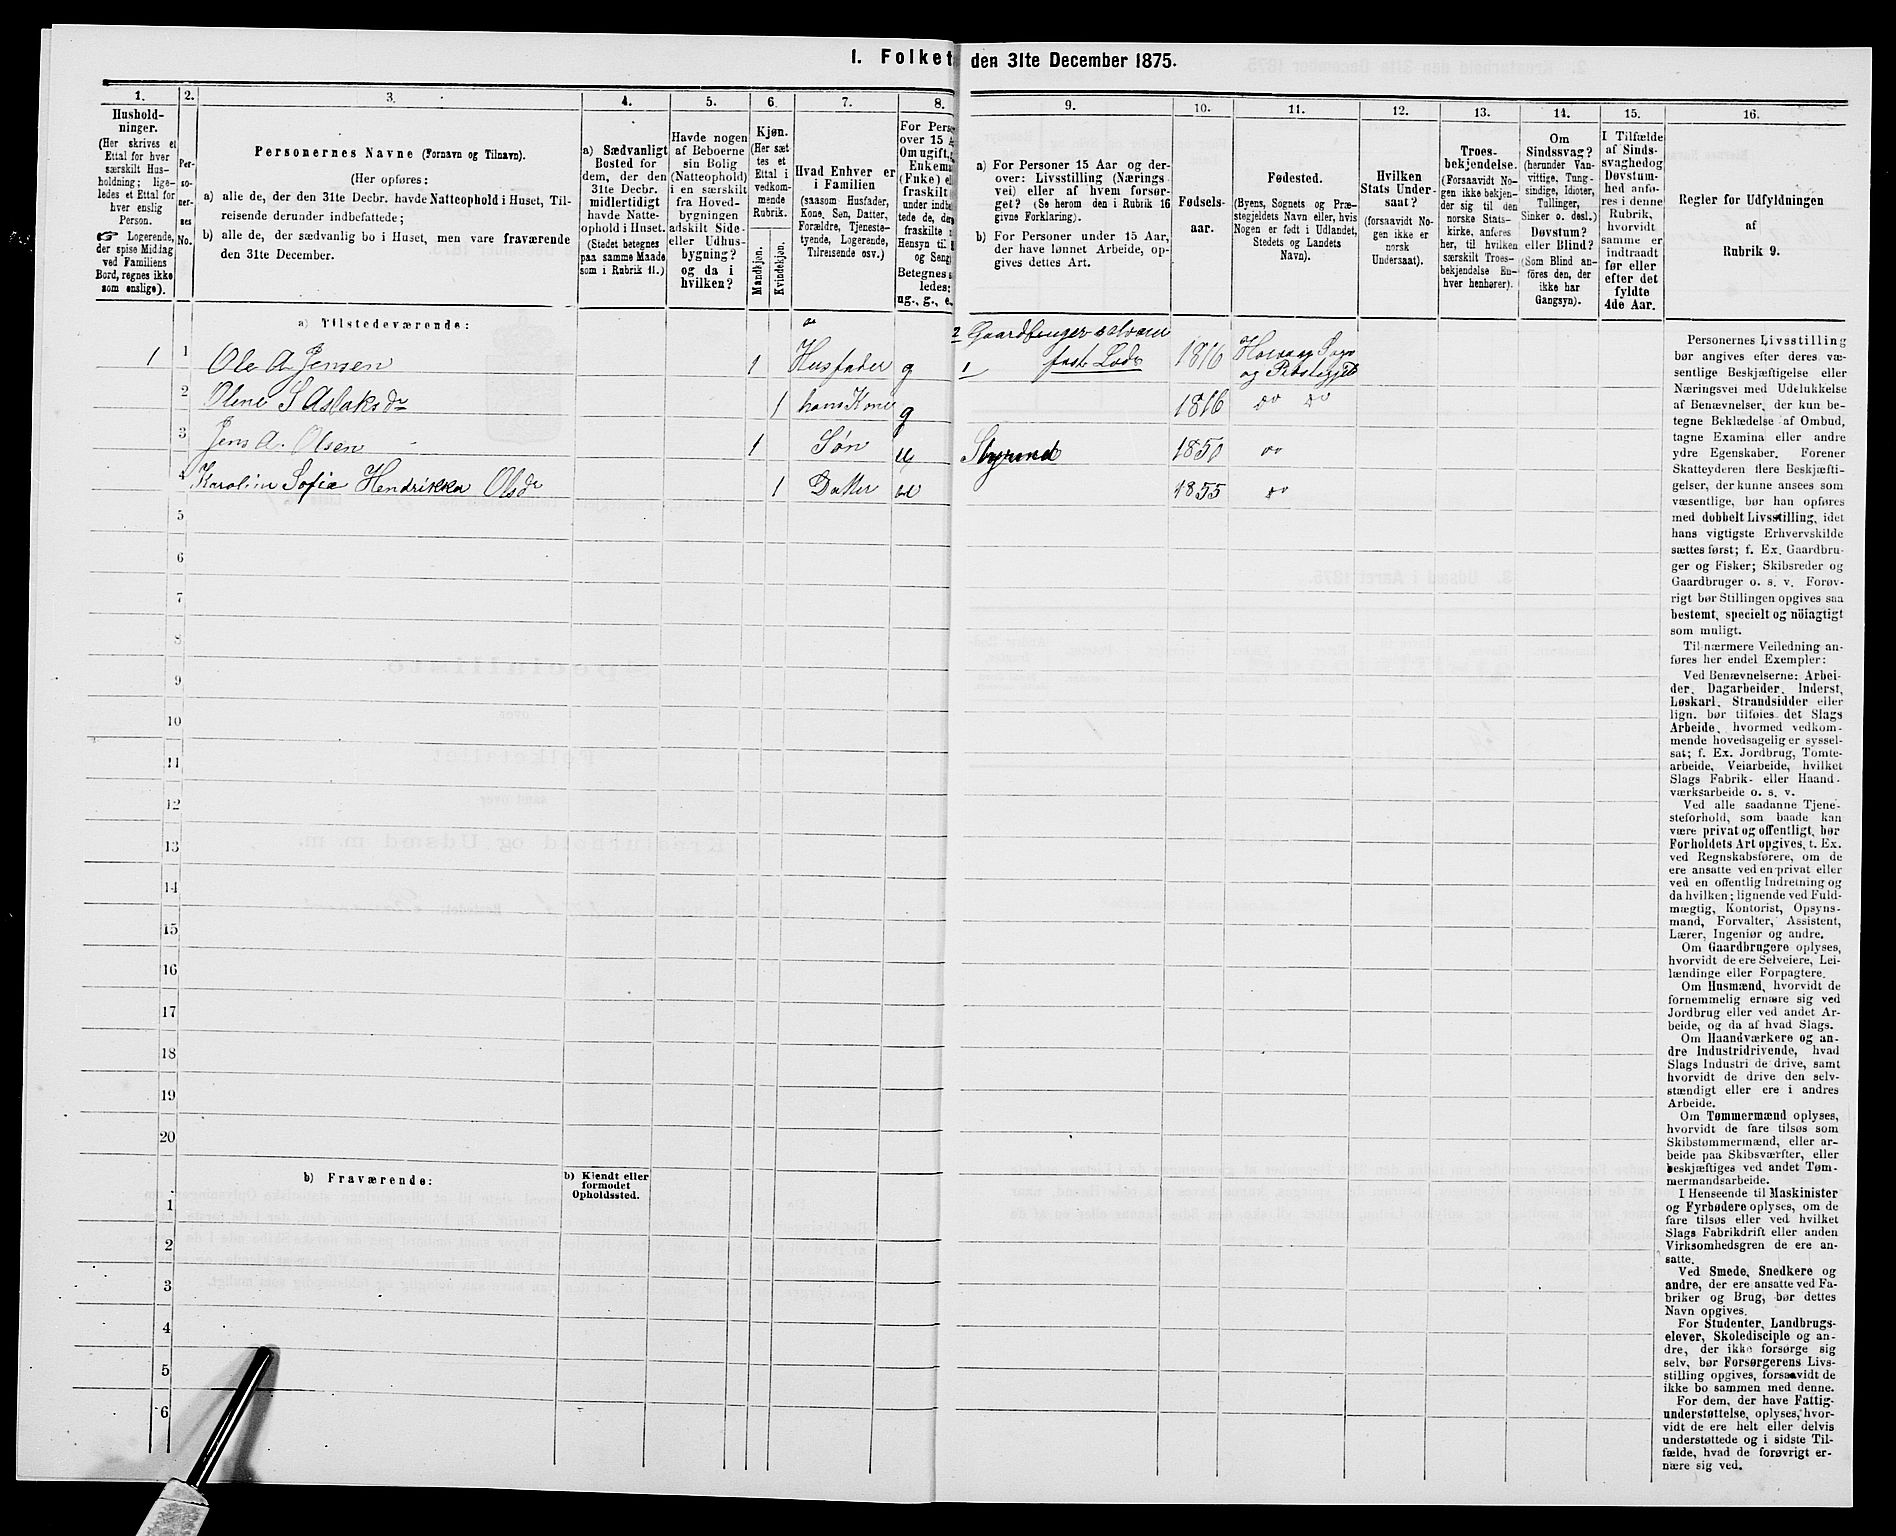 1. Folket
den 31te December 1875.
1.
Hushold-
ninger.
(Her skrives et
Ettal for hver
særskilt Hus-
holdning; lige-
ledes et Ettal for
hver enslig
Person.
☞ Logerende,
der spise Middag
ved Familiens
Bord, regnes ikke
som enslige).
2.
Per-
so-
ner-
nes
No.
3.
Personernes Navne (Fornavn og Tilnavn).
(Her opføres:
a) alle de, der den 31te Decbr. havde Natteophold i Huset, Til-
reisende derunder indbefattede;
b) alle de, der sædvanlig bo i Huset, men vare fraværende
den 31te December.
4.
a) Sædvanligt
Bosted for
dem, der den
31te Decbr.
midlertidigt
havde Natte-
ophold i Huset.
(Stedet betegnes
paa samme Maade
som i Rubrik 11.)
5.
Havde nogen
af Beboerne
sin Bolig
(Natteophold)
i en særskilt
fra Hoved-
bygningen
adskilt Side-
eller Udhus-
bygning?
og da i
hvilken?
6.
Kjøn.
(Her sæt
tes et
Ettal i
vedkom-
mende
Rubrik.
Mandkjøn.
Kvindekjøn.
7.
Hvad Enhver er
i Familien
(saasom Husfader,
Kone, Søn, Datter,
Forældre, Tjeneste-
tyende, Logerende,
Tilreisende osv.)
8.
For Pers
over 15 A
Om ugift,
Enkema
(Enke) e
fraskilt
under indb
tede de, der
fraskilte
Hensyn til
og Seng
Betegnes s
ledes:
ug., g., e.,
9.
a) For Personer 15 Aar og der-
over: Livsstilling (Nærings-
vei) eller af hvem forsør-
get? (Se herom den i Rubrik 16
givne Forklaring).
b) For Personer under 15 Aar,
der have lønnet Arbeide, op-
gives dettes Art.
10.
Fødsels-
aar.
11.
Fødested.
(Byens, Sognets og Præ-
stegjeldets Navn eller, hvis
Nogen er født i Udlandet,
Stedets og Landets
Navn).
12.
Hvilken
Stats Under-
saat?
(forsaavidt No-
gen ikke er
norsk
Undersaat).
13.
Troes-
bekjendelse.
(Forsaavidt No-
gen ikke bekjen-
der sig til den
norske Stats-
kirke, anføres
her, til hvilken
særskilt Troes-
bekjendelse En-
hver henhører).
14.
Om
Sindssvag?
(herunder Van-
vittige, Tung-
sindige, Idioter,
Tullinger,
Sinker o. desl.)
Døvstum?
eller Blind?
(Som Blind an-
føres den, der
ikke har
Gangsyn).
15.
I Tilfælde
af Sinds-
svaghedog
Døvstum-
hed anfø-
res i denne
Rubrik,
hvorvidt
samme er
indtraadt
før eller
efter det
fyldte
4de Aar.
16.
Regler for Udfyldningen
af
Rubrik 9.
a) Tilstedeværende:
1 1 Ole A Jensen 1 Husfader g
2 Gaardbruger selveier
1 fast Lods 1816 Høivaag Sogn
og Præstegjeld
2 Olene S Aslaksdr 1 hans Kone g 1816 do do
3 Jens A. Olsen 1 Søn u Styrmand 1850 do
4 Karolin Sofie Hendrikka Olsdr 1 Datter u 1855 do
5
6
7
8
9
10
11
12
13
14
15
16
17
18
19
20
b) Fraværende:
b) Kjendt eller
formodet
Opholdssted.
1
2
3
4
5
6
Personernes Livsstilling
bør angives efter deres væ-
sentlige Beskjæftigelse eller
Næringsvei med Udelukkelse
af Benævnelser, der kun be-
tegne Beklædelse af Ombud,
tagne Examina eller andre
ydre Egenskaber. Forener
Skatteyderen flere Beskjæfti-
gelser, der kunne ansees som
væsentlige, bør han opføres
med dobbelt Livsstilling, idet
hans vigtigste Erhvervskilde
sættes først; f. Ex. Gaardbru-
ger og Fisker; Skibsreder og
Gaardbruger o. s. v. Forøv-
rigt bør Stillingen opgives saa
bestemt, specielt og nöiagtigt
som muligt.
Til nærmere Veiledning an-
føres her endel Exempler:
Ved Benævnelserne: Arbei-
der, Dagarbeider, Inderst,
Løskarl, Strandsidder eller
lign. bør tilføies det Slags
Arbeide, hvormed vedkom-
mende hovedsagelig er syssel-
sat; f. Ex. Jordbrug, Tomte-
arbeide, Veiarbeide, hvilket
Slags Fabrik- eller Haand-
værksarbeide o. s. v.
Ved alle saadanne Tjene-
steforhold, som baade kan
være privat og offentligt, bør
Forholdets Art opgives, t. Ex.
ved Regnskabsførere, om de
ere ansatte ved en privat eller
ved en offentlig Indretning og
da hvilken; lignende ved Fuld-
mægtig, Kontorist, Opsyns-
mand, Forvalter, Assistent,
Lærer, Ingeniør og andre.
Om Gaardbrugere oplyses,
hvorvidt de ere Selveiere, Lei-
lændinge eller Forpagtere.
Om Husmænd, hvorvidt de
fornemmelig ernære sig ved
Jordbrug eller ved andet Ar-
beide, og da af hvad Slags.
Om Haandværkere og an-
dre Industridrivende, hvad
Slags Industri de drive, samt
hvorvidt de drive den selv-
stændigt eller ere i andres
Arbeide.
Om Tømmermænd oplyses,
hvorvidt de fare tilsøs som
Skibstømmermænd, eller ar-
beide paa Skibsværfter, eller
beskjæftiges ved andet Tøm-
mermandsarbeide.
I Henseende til Maskinister
og Fyrbødere oplyses, om de
fare tilsøs eller ved hvilket
Slags Fabrikdrift eller anden
Virksomhedsgren de ere an-
satte.
Ved Smede, Snedkere og
andre, der ere ansatte ved Fa-
briker og Brug, bør dettes
Navn opgives.
For Studenter, Landbrugs-
elever, Skoledisciple og an-
dre, der ikke forsørge sig
selv, bør Forsørgerens Livs-
stilling opgives, forsaavidt de
ikke bo sammen med denne.
For dem, der have Fattig-
understøttelse, oplyses, hvor-
vidt de ere helt eller delvis
understøttede og i sidste Til-
fælde, hvad de forøvrigt er-
nære sig ved.